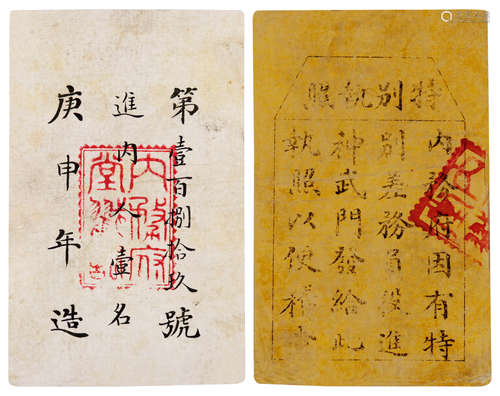 第壹百捌拾玖號
進內人壹名
庚申年造
內務府
堂
特別執照
內務府因有特
別差務官役進
神武門發給此
執照以便稽查